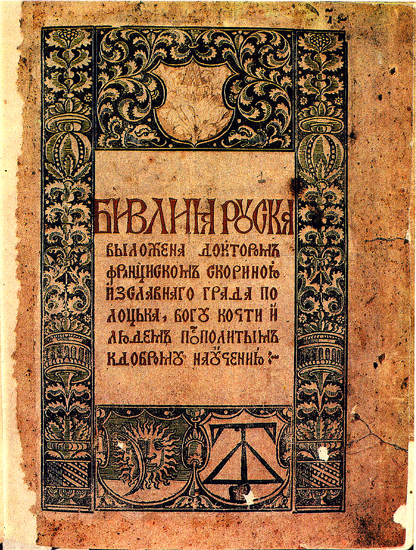 БИВЛИꙖ РУСКА
ВЫЛОЖЕНА ДОКТОРОМЪ
ФРАНЦИСКОМЪ СКОРИНОЮ
ИЗСЛАВНАГО ГРАДА ПО
ЛОЦЬКА, БОГУ КОЧТИ И
ЛЮДЕМЪ ПОСПОЛИТЫМЪ
КДОБРОМУ НАУЧЕНИЮ